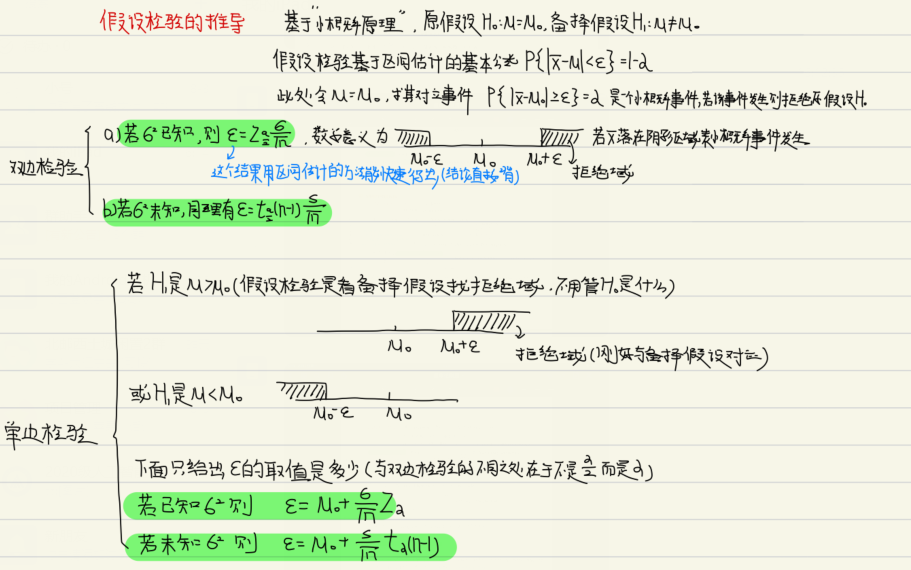 假设检验的推导 基于"小概率原理",原假设 H₀:μ=μ₀,备择假设H₁:μ≠μ₀
假设检验基于区间估计的基本公式 P{|x̄-μ|<ε}=1-α
此处令 μ=μ₀,求其对立事件 P{|x̄-μ₀|≥ε}=α 是个小概率事件,若该事件发生则拒绝原假设H₀
双边检验
a)若σ²已知,则 ε=Z_{α/2} σ/√n ,数轴意义为 若x̄落在阴影区域表小概率事件发生
μ₀-ε μ₀ μ₀+ε
这个结果用区间估计的方法能快速得出(结论直接背) 拒绝域
b)若σ²未知,同理有ε=t_{α/2}(n-1) s/√n
单边检验
若 H₁是 μ>μ₀(假设检验是看备择假设找拒绝域,不用管H₀是什么)
μ₀ μ₀+ε 拒绝域(刚好与备择假设对应)
或H₁是 μ<μ₀
μ₀-ε μ₀
下面只给出 ε的取值是多少(与双边检验的不同之处在于不是α/2 而是α)
若已知σ² 则 ε=μ₀+σ/√n Z_α
若未知σ² 则 ε=μ₀+s/√n t_α(n-1)